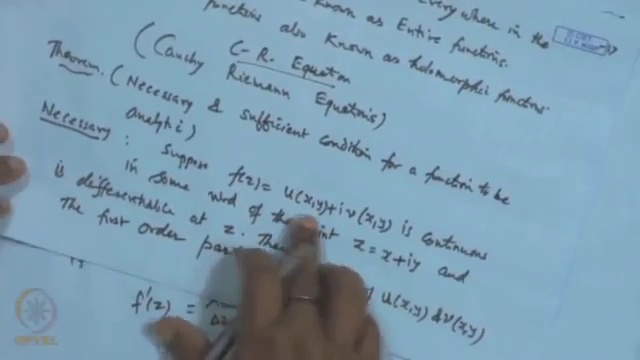 known as Entire functions. everywhere in the
functions also known as holomorphic functions.
C-R. Equation
(Cauchy Riemann Equations)
Theorem. (Necessary & sufficient condition for a function to be
analytic)
Necessary: Suppose f(z) = u(x,y) + i v(x,y) is continuous
in some nbd of the point z = x+iy and
is differentiable at z. The
The first order u(x,y) & v(x,y)
f'(z) =